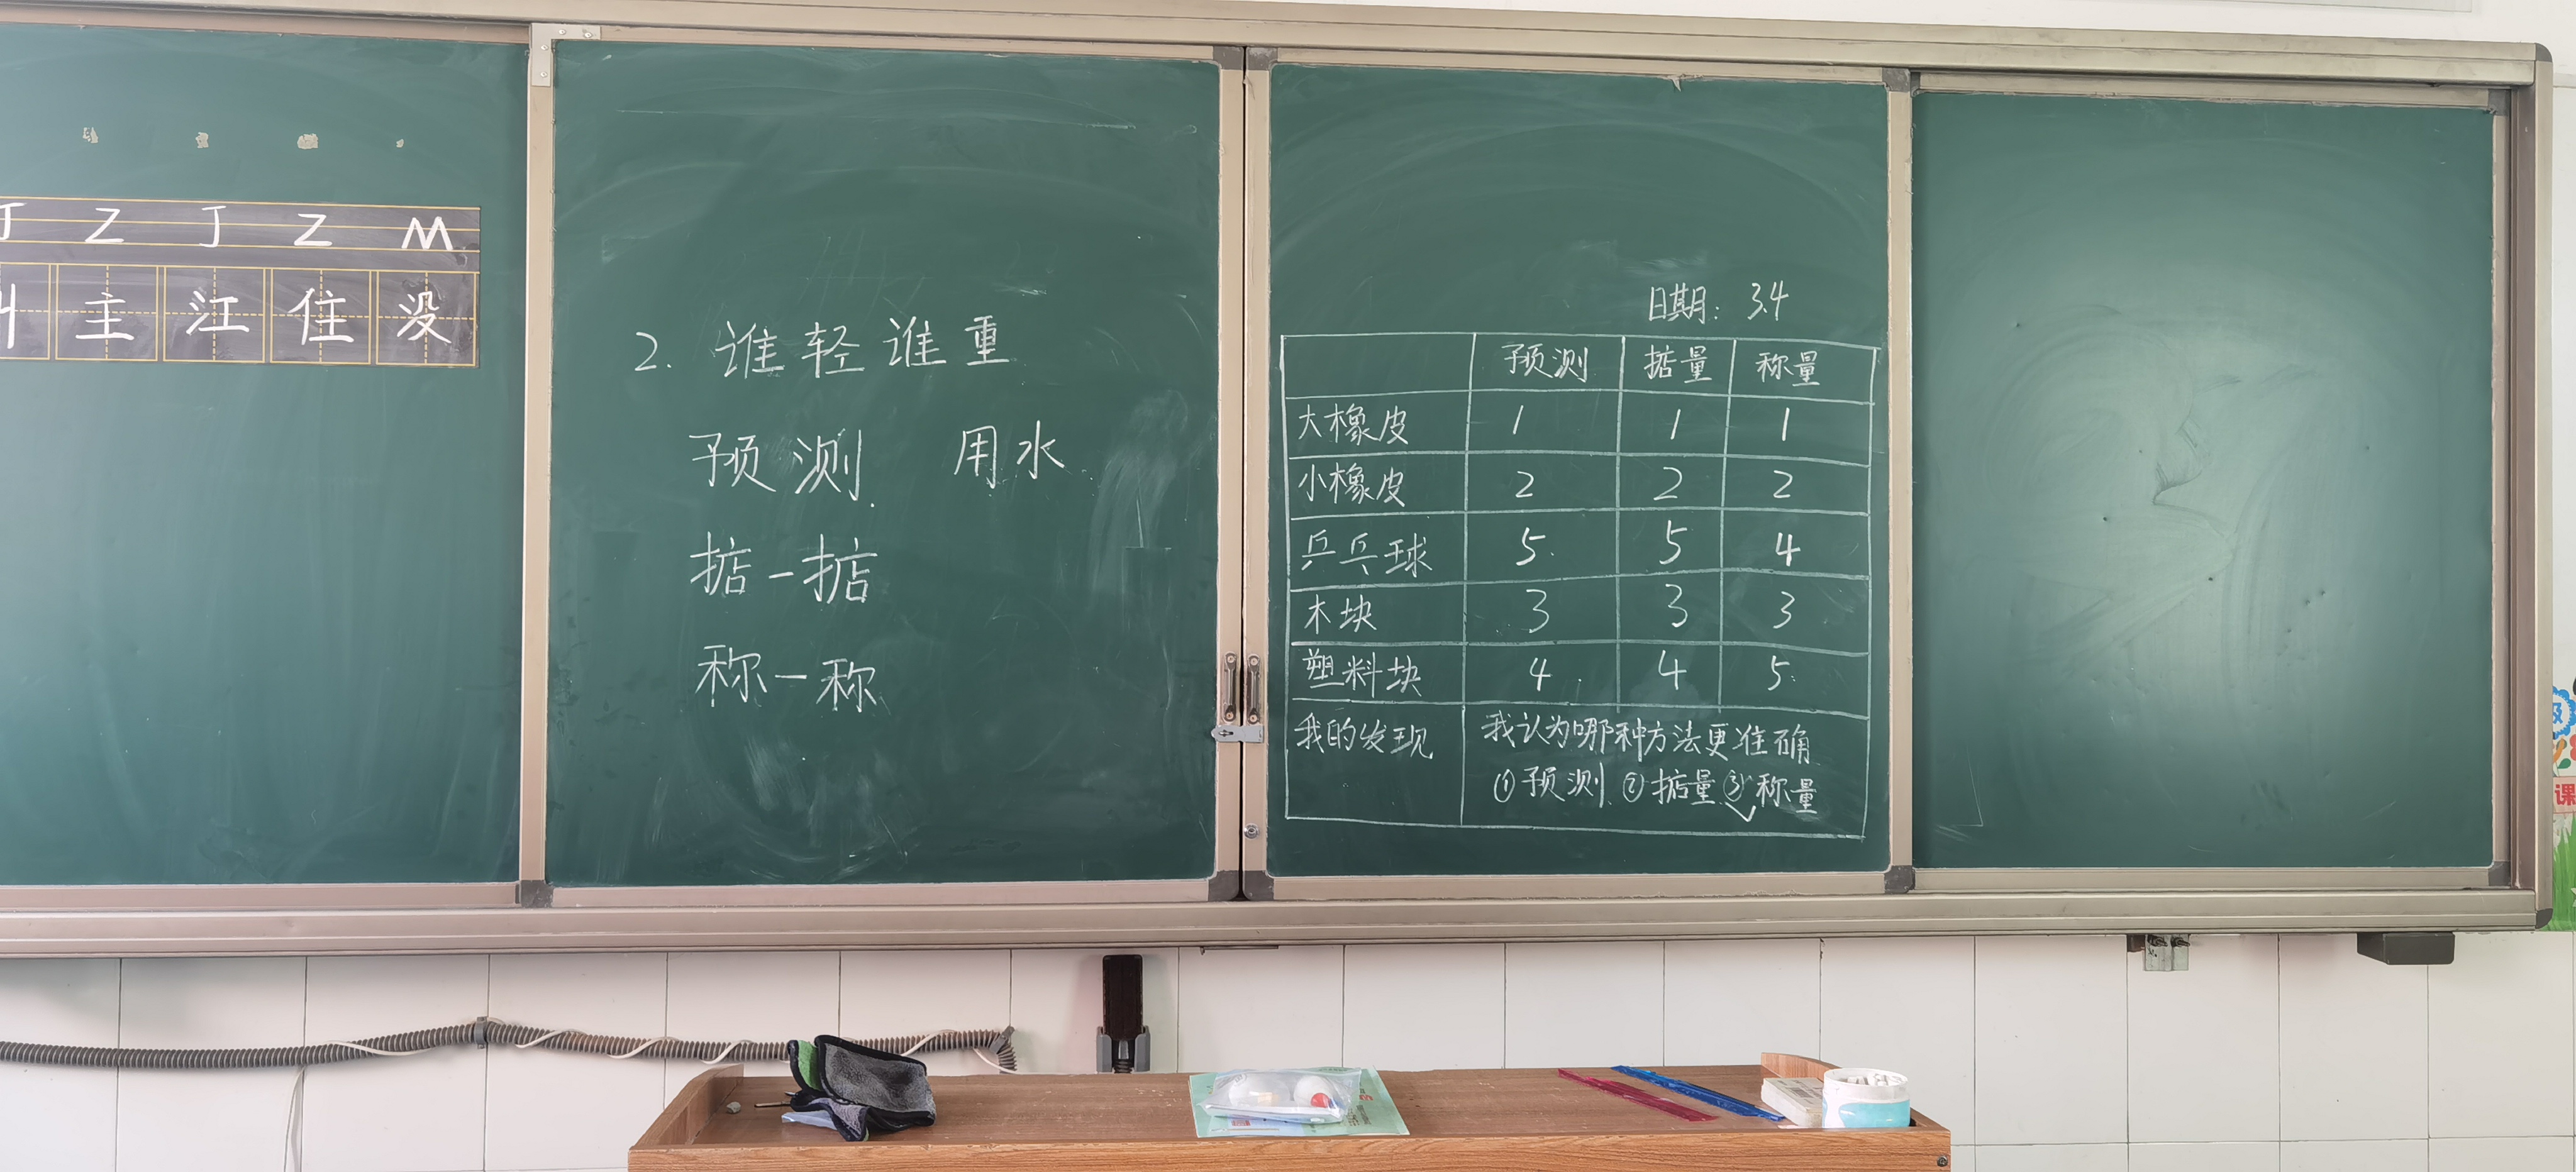 J Z J Z M
叫 主 江 住 没
2. 谁轻谁重
预测 用水
掂一掂
称一称
日期：3.4
预测 掂量 称量
大橡皮 1 1 1
小橡皮 2 2 2
乒乓球 5 5 4
木块 3 3 3
塑料块 4 4 5
我的发现 我认为哪种方法更准确
①预测 ②掂量 ③称量
课